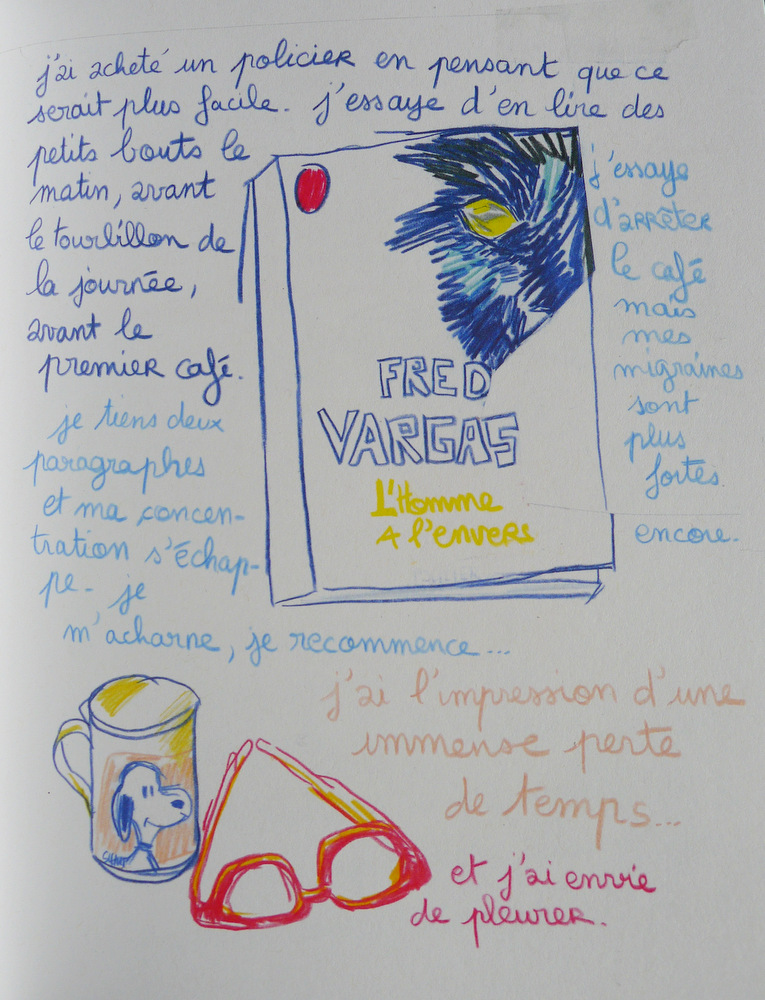 j'ai acheté un policier en pensant que ce
serait plus facile. j'essaye d'en lire des
petits bouts le
matin, avant
le tourbillon de
la journée,
avant le
premier café.
je tiens deux
paragraphes
et ma concen-
tration s'échap-
pe. je
m'acharne, je recommence...
FRED
VARGAS
L'Homme
A l'envers
j'essaye
d'arrêter
le café
mais
mes
migraines
sont
plus
fortes
encore.
j'ai l'impression d'une
immense perte
de temps...
et j'ai envie
de pleurer.